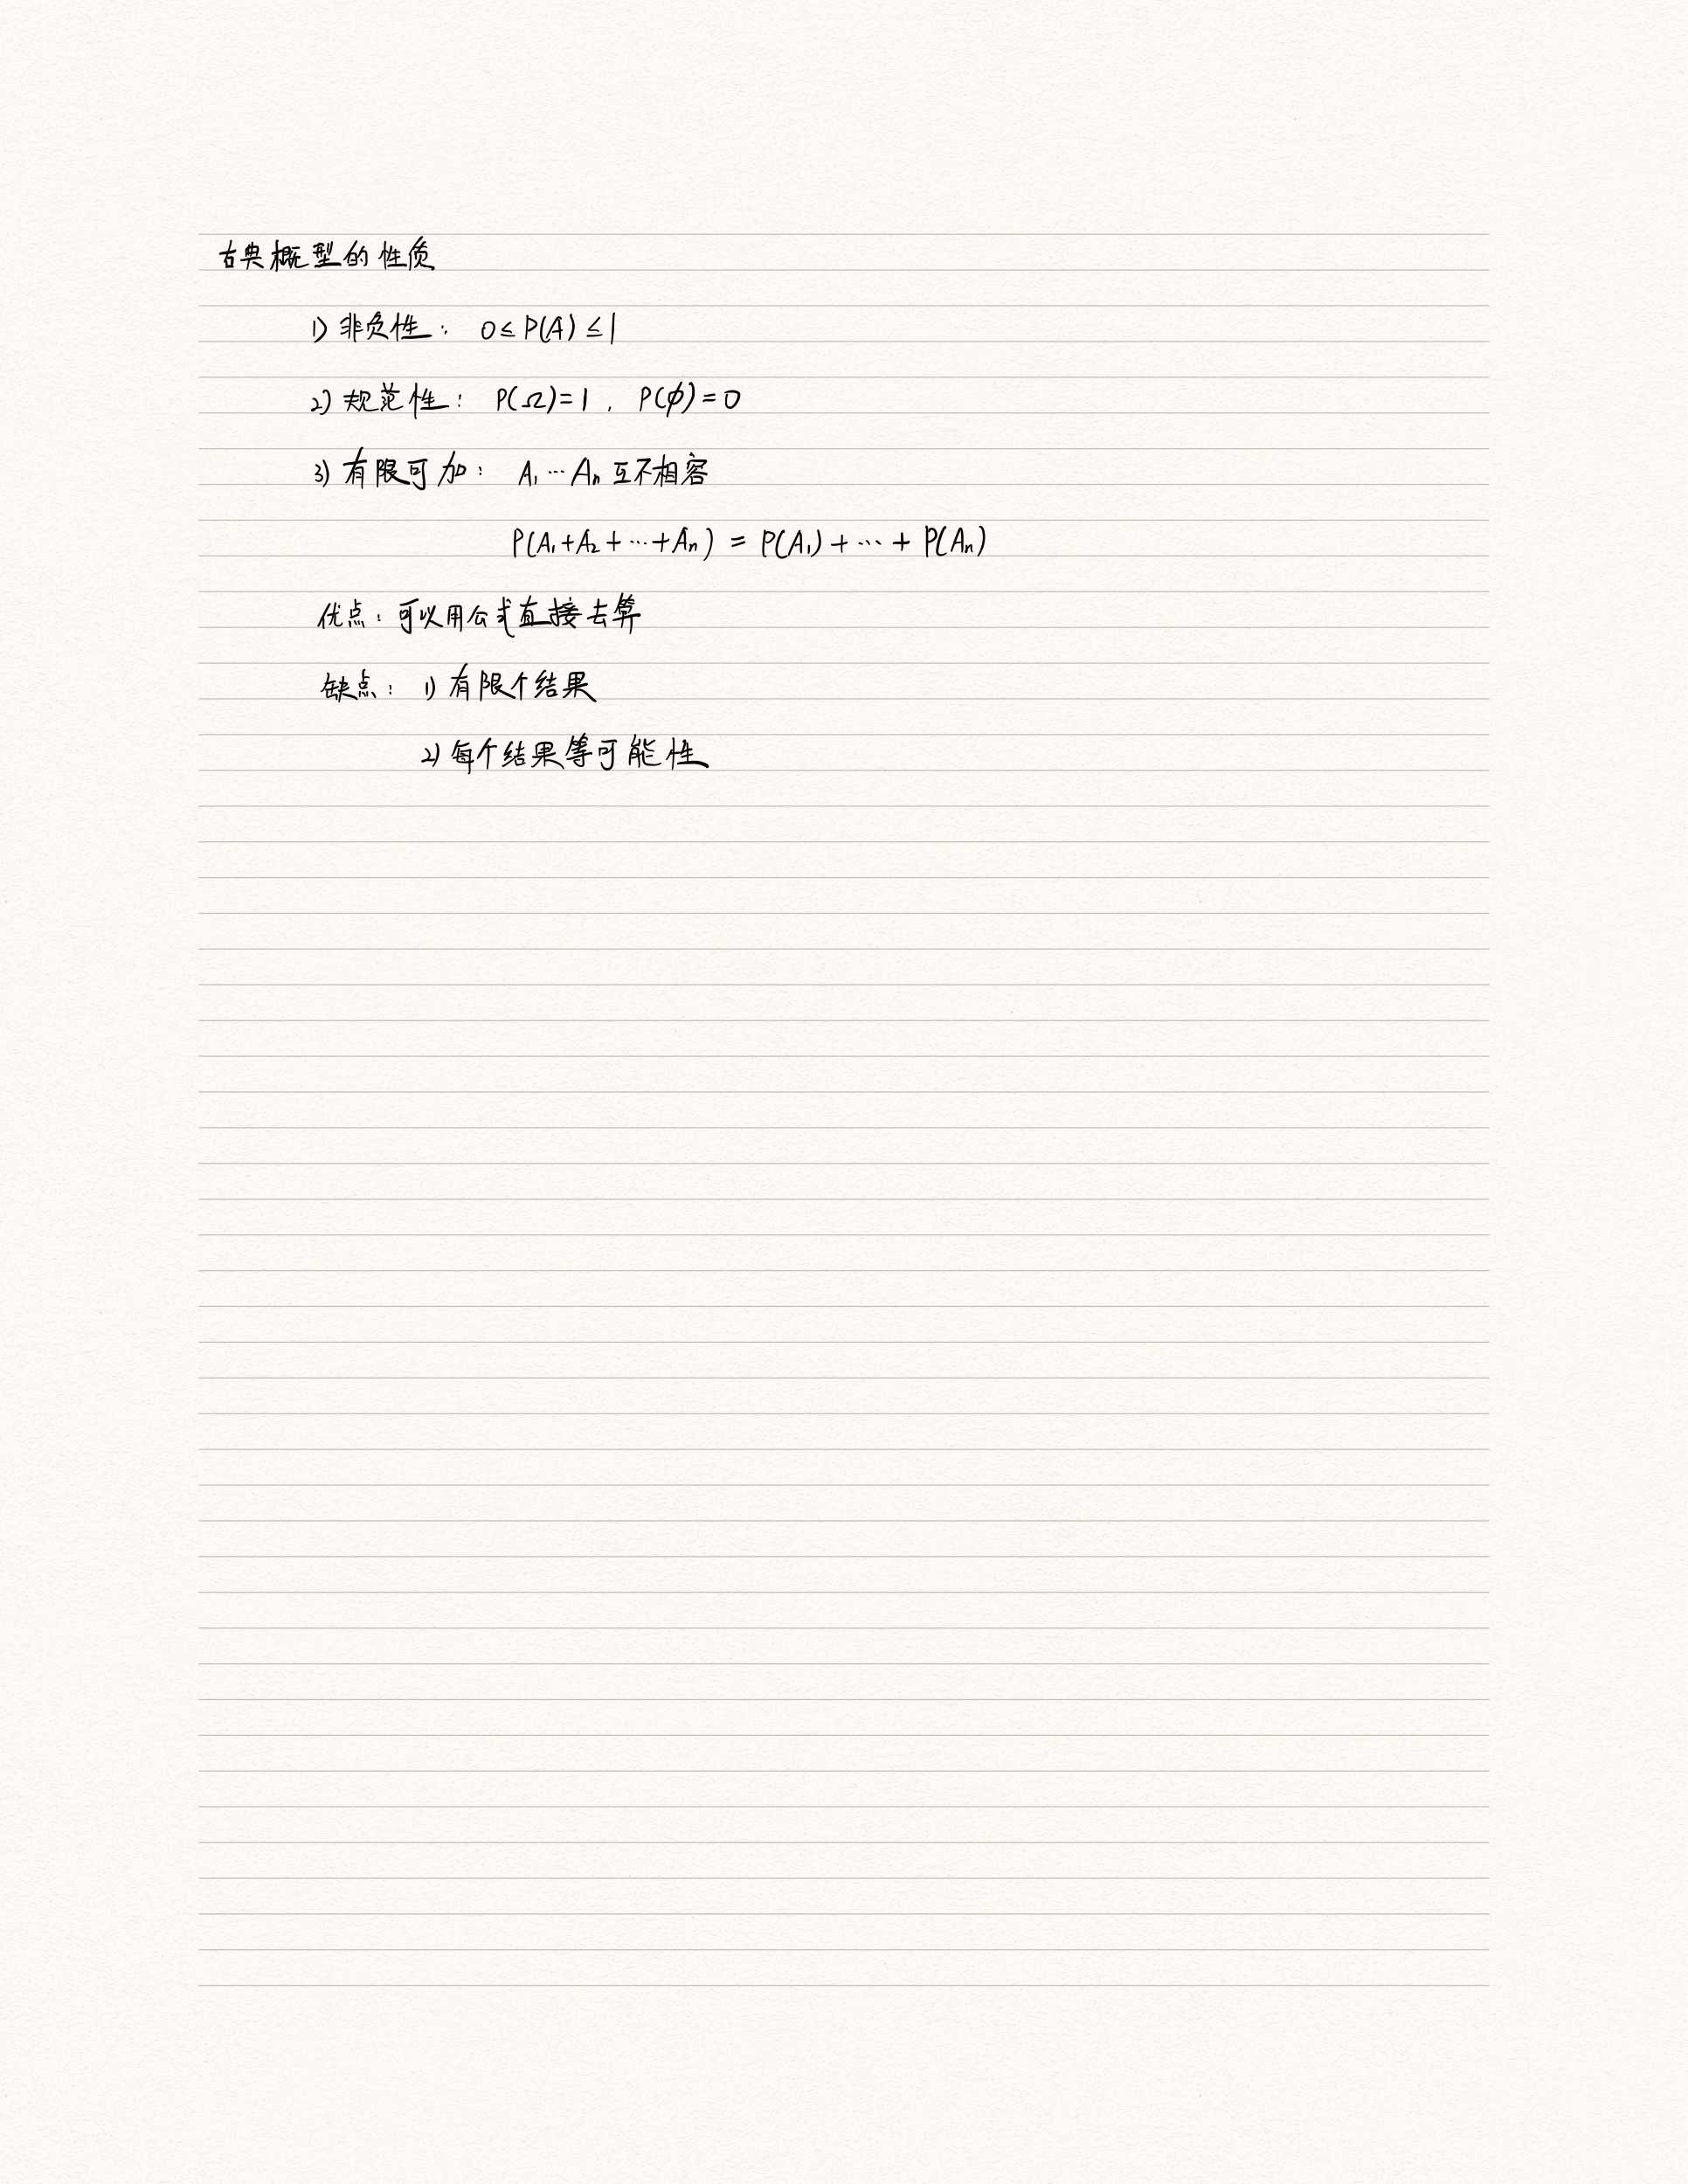 古典概型的性质
1) 非负性： 0≤P(A)≤1
2) 规范性： P(Ω)=1 , P(ϕ)=0
3) 有限可加： A₁…Aₙ 互不相容
P(A₁+A₂+…+Aₙ) = P(A₁)+…+P(Aₙ)
优点：可以用公式直接去算
缺点： 1) 有限个结果
2) 每个结果等可能性